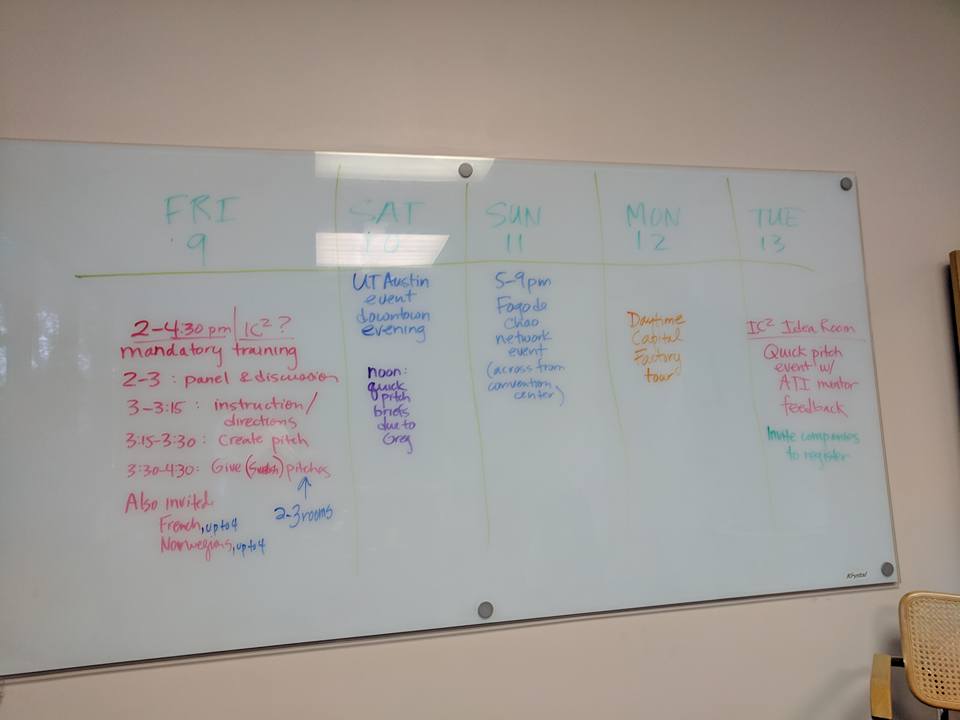 FRI
9
2-4:30 pm | IC² ?
mandatory training
2-3 : panel & discussion
3-3:15 : instruction/
directions
3:15-3:30 : Create pitch
3:30-4:30 : Give ( ) pitches
2-3 rooms
Also invited
French, up to 4
Norwegians, up to 4
SAT
10
UT Austin
event
downtown
evening
noon:
quick
pitch
briefs
due to
Greg
SUN
11
5-9pm
Fogo de
Chao
network
event
(across from
convention
center)
MON
12
Daytime
Capital
Factory
tour
TUE
13
IC² Idea Room
Quick pitch
event w/
ATI mentor
feedback
Invite companies
to register
Krystal